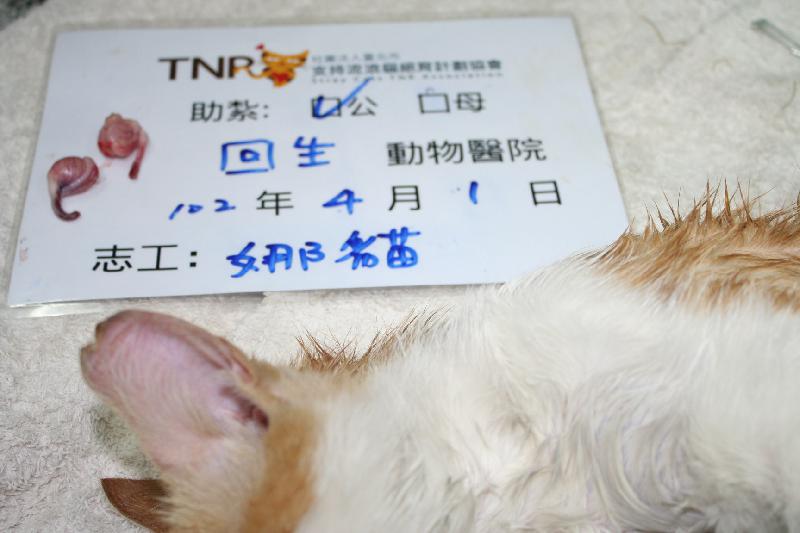 TNR 社團法人臺北市
支持流浪貓絕育計劃協會
Stray Cats TNR Association
助紮: ☑公 ☐母
回生 動物醫院
102 年 4 月 1 日
志工: 娜貓